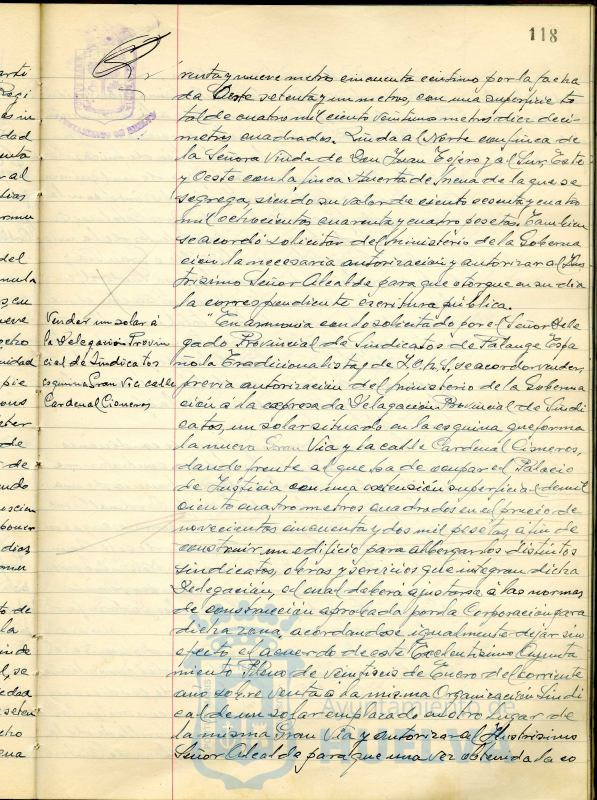 118
renta y nueve metros cincuenta centimos por la facha
da Oeste setenta y un metros, con una superficie to
tal de cuatro mil ciento veintiun metros diez deci-
metros cuadrados. Linda al Norte con finca de
la Señora Viuda de Don Juan Tejero y al Sur, Este
y Oeste con la finca Huerta de Mena de la que se
segrega, siendo su valor de ciento sesenta y cuatro
mil ochocientos cuarenta y cuatro pesetas. Tambien
se acordó solicitar del Ministerio de la Goberna
ción la necesaria autorización y autorizar al Ilus
trisimo Señor Alcalde para que otorgue en su dia
la correspondiente escritura pública.
Vender un solar á
la Delegación Provin
cial de Sindicatos
esquina Gran Via calle
Cardenal Cisneros
"En armonia con lo solicitado por el Señor Dele
gado Provincial de Sindicatos de Falange Espa
ñola Tradicionalista y de J.O.N.S, se acordó vender,
previa autorización del Ministerio de la Goberna
ción á la expresada Delegación Provincial de Sindi
catos, un solar situado en la esquina que forma
la nueva Gran Via y la calle Cardenal Cisneros,
dando frente al que ha de ocupar el Palacio
de Justicia con una extensión superficial de mil
ciento cuatro metros cuadrados en el precio de
novecientas cincuenta y dos mil pesetas, a fin de
construir un edificio para albergar los distintos
sindicatos, obras y servicios que integran dicha
Delegación, el cual deberá ajustarse á las normas
de construcción aprobada por la Corporación para
dicha zona, acordandose igualmente dejar sin
efecto el acuerdo de este Excelentisimo Ayunta
miento Pleno de veintiseis de Enero del corriente
año sobre venta á la misma Organización Sindi
cal de un solar emplazado en otro lugar de
la misma Gran Via y autorizar al Ilustrisimo
Señor Alcalde para que una vez obtenida la co
Ayuntamiento de
HUELVA